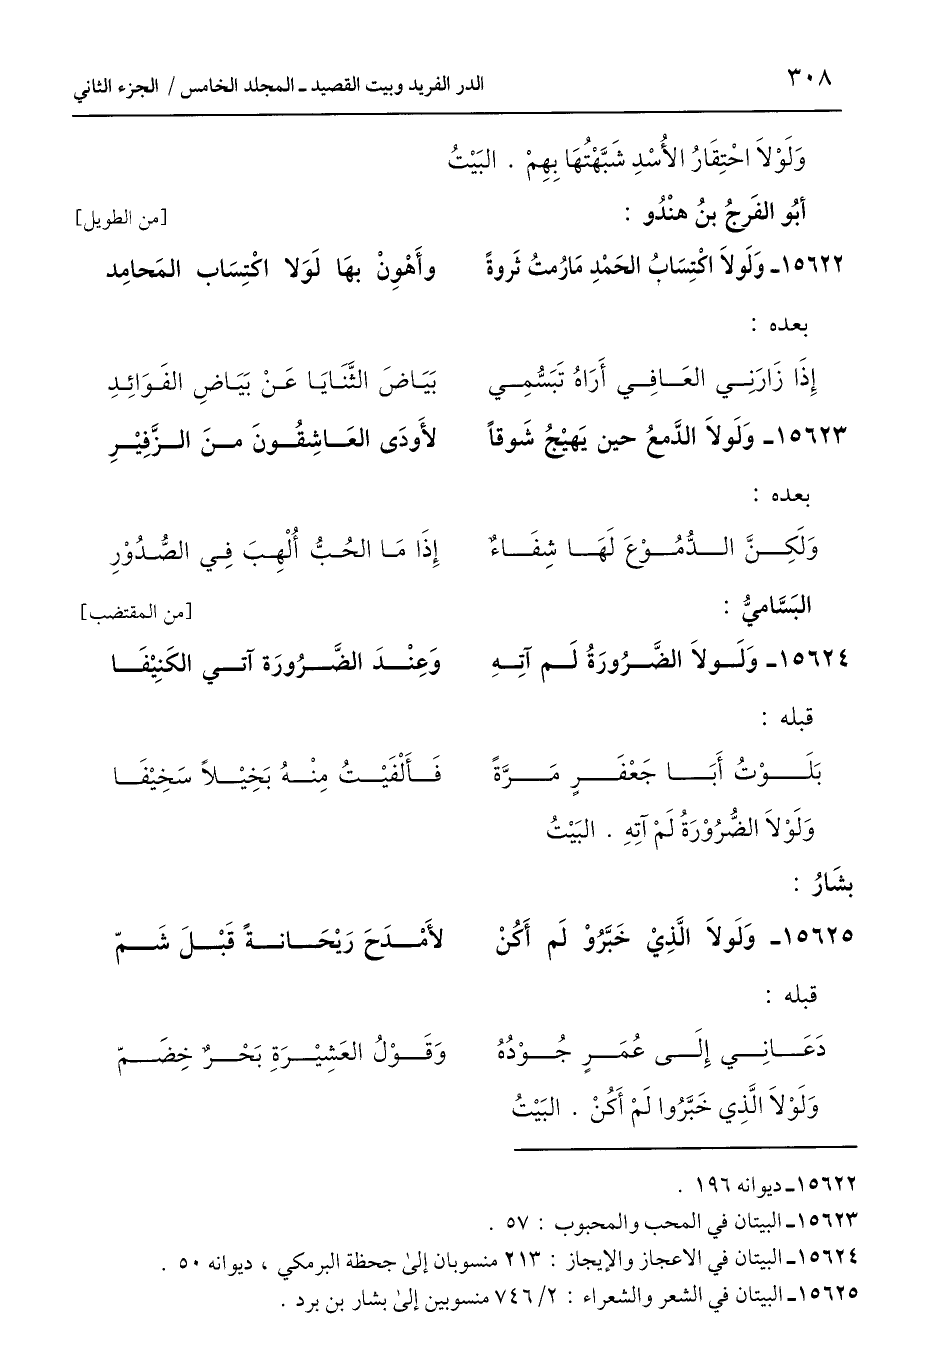 ٣٠٨ الدر الفريد وبيت القصيد ـ المجلد الخامس / الجزء الثاني
وَلَوْلاَ احْتِقَارُ الأُسْدِ شَبَّهْتُهَا بِهِمْ . البَيْتُ
أبُو الفَرجُ بنُ هنْدُو : [من الطويل]
١٥٦٢٢ـ وَلَولاَ اكْتِسَابُ الحَمْدِ مَارُمتُ ثَروةً وأَهْونْ بهَا لَولا اكْتِسَاب المَحامِد
بعده :
إِذَا زَارَنِي العَافِي أَرَاهُ تَبَسُّمِي بَيَاضَ الثَّنَايَا عَنْ بَيَاضِ الفَوَائِدِ
١٥٦٢٣ـ وَلَولاَ الدَّمعُ حين يَهيْجُ شَوقاً لأَودَى العَاشِقُونَ منَ الزَّفِيْرِ
بعده :
وَلَكِنَّ الدُّمُوْعَ لَهَا شِفَاءٌ إِذَا مَا الحُبُّ أُلْهِبَ فِي الصُّدُوْرِ
البَسَّاميُّ : [من المقتضب]
١٥٦٢٤ـ وَلَولاَ الضَّرُورَةُ لَم آتِهِ وَعِنْدَ الضَّرُورَة آتي الكَنِيْفَا
قبله :
بَلَوْتُ أَبَا جَعْفَرٍ مَرَّةً فَأَلْفَيْتُ مِنْهُ بَخِيْلاً سَخِيْفَا
وَلَوْلاَ الضُّرُوْرَةُ لَمْ آتِهِ . البَيْتُ
بشَارُ :
١٥٦٢٥ـ وَلَولاَ الَّذِيْ خَبَّرُوْ لَم أَكُنْ لأَمْدَحَ رَيْحَانةً قَبْلَ شَمّ
قبله :
دَعَانِي إِلَى عُمَرٍ جُوْدُهُ وَقَوْلُ العَشِيْرَةِ بَحْرٌ خِضَمّ
وَلَوْلاَ الَّذِي خَبَّرُوا لَمْ أَكُنْ . البَيْتُ
١٥٦٢٢ـ ديوانه ١٩٦ .
١٥٦٢٣ـ البيتان في المحب والمحبوب : ٥٧ .
١٥٦٢٤ـ البيتان في الاعجاز والإيجاز : ٢١٣ منسوبان إلىٰ جحظة البرمكي ، ديوانه ٥٠ .
١٥٦٢٥ـ البيتان في الشعر والشعراء : ٢/ ٧٤٦ منسوبين إلىٰ بشار بن برد .